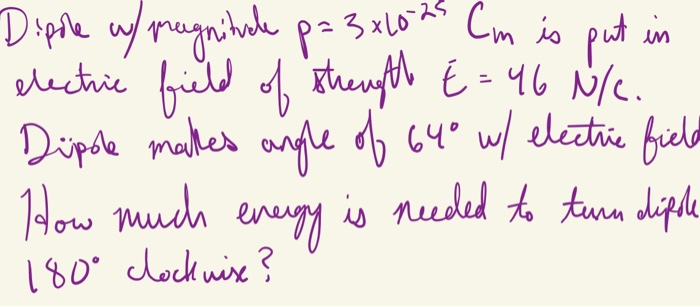 Dipole w/ magnitude p = 3 x 10^-25 Cm is put in
electric field of strength E = 46 N/C.
Dipole makes angle of 64° w/ electric field
How much energy is needed to turn dipole
180° clockwise?